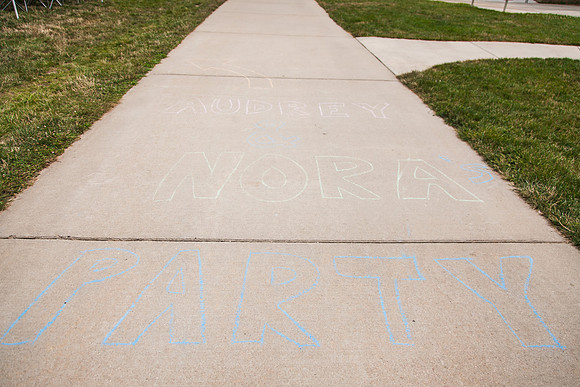 AUDREY
NORA
PARTY